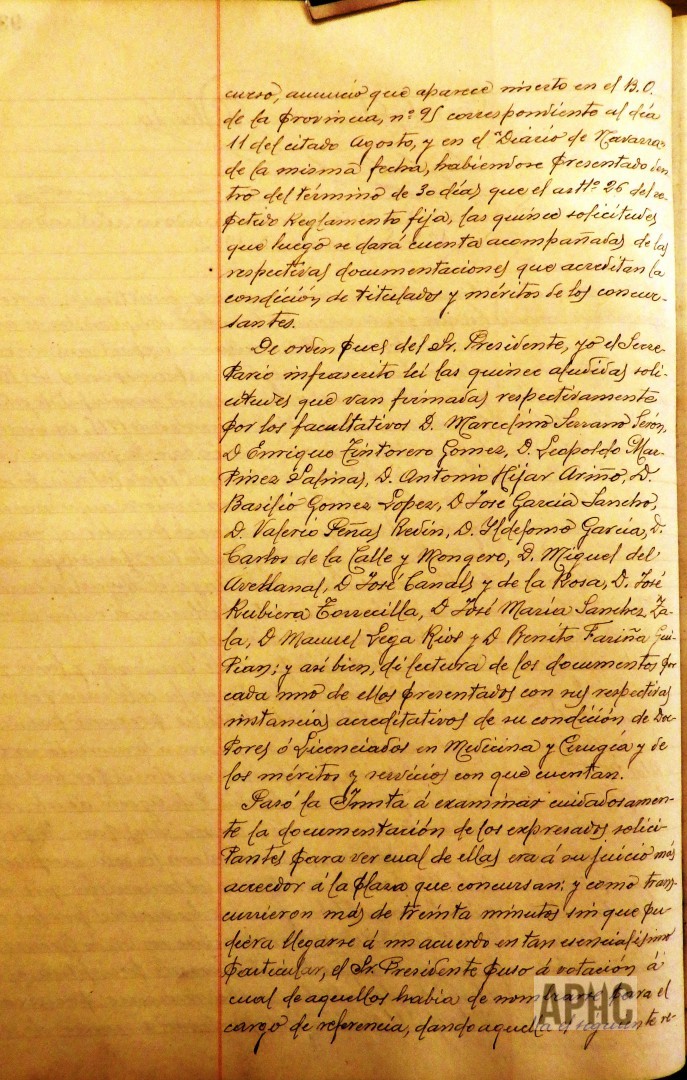 curso, anuncio que aparece inserto en el B.O.
de la provincia, nº 95 correspondiente al día
11 del citado Agosto, y en el "Diario de Navarra"
de la misma fecha, habiéndose presentado den-
tro del término de 30 días que el artº 26 del re-
petido Reglamento fija, las quince solicitudes
que luego se dará cuenta acompañadas de las
respectivas documentaciones que acreditan la
condición de titulados y méritos de los concur-
santes.
De orden pues del Sr. Presidente, yo el Secre-
tario infrascrito leí las quince aludidas soli-
citudes que van firmadas respectivamente
por los facultativos D. Marcelino Serrano Serón,
D Enrique Tintorero Gomez, D. Leopoldo Mar-
tinez Salinas, D. Antonio Hijar Ariño, D.
Basilio Gomez Lopez, D José García Sancho,
D. Valerio Peñas Redin, D. Ildefonso García, D.
Carlos de la Calle y Mongero, D. Miguel del
Avellanal, D José Canals y de la Rosa, D. José
Rubiera Torrecilla, D José María Sanchez Za-
la, D Manuel Vega Rios y D Benito Fariña Gui-
tian; y así bien, dí lectura de los documentos por
cada uno de ellos presentados con sus respectivas
instancias acreditativos de su condición de Doc-
tores ó Licenciados en Medicina y Cirugía y de
los méritos y servicios con que cuentan.
Pasó la Junta á examinar cuidadosamen-
te la documentación de los expresados solici-
tantes para ver cual de ellas era á su juicio más
acreedor á la plaza que concursan: y como trans-
currieron más de treinta minutos sin que pu-
diera llegarse á un acuerdo en tan esencialísimo
particular, el Sr. Presidente puso á votación á
cual de aquellos había de nombrarse para el
cargo de referencia, dando aquella el siguiente re-
APHC